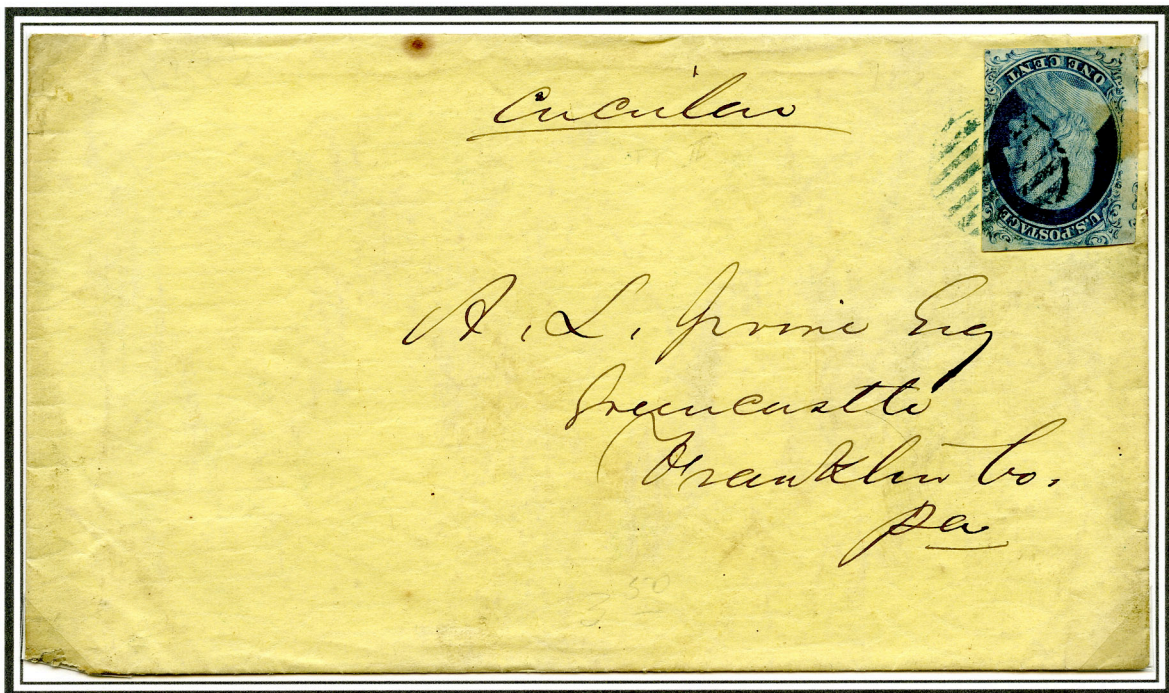 Circular
ONE CENT
U.S. POSTAGE
A. L. Irvine Esq
Greencastle
Franklin Co.
Pa
50